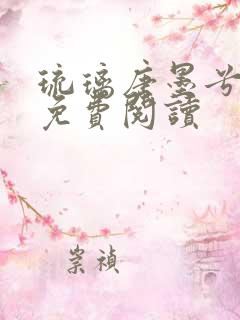 琉璃唐墨兮
免費閱讀
崇禎